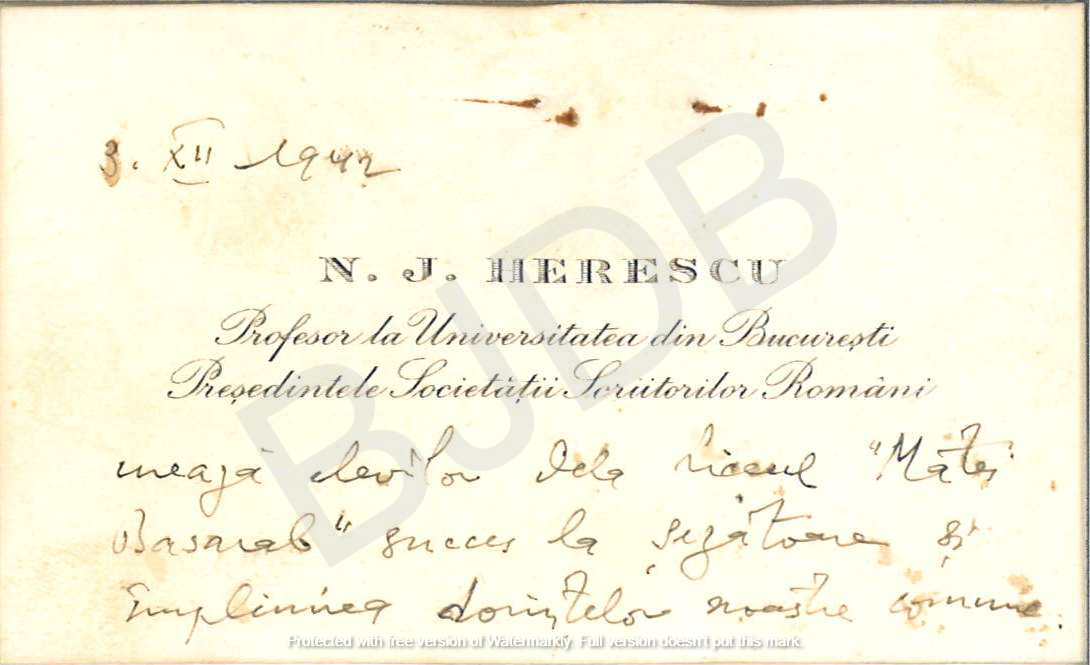 3. XII 1942
N. J. HERESCU
Profesor la Universitatea din București
Președintele Societății Scriitorilor Români
urează elevilor dela liceul "Matei
Basarab" succes la șezătoare și
împlinirea dorințelor noastre comune.
BJDB
Protected with free version of Watermarkly. Full version doesn't put this mark.